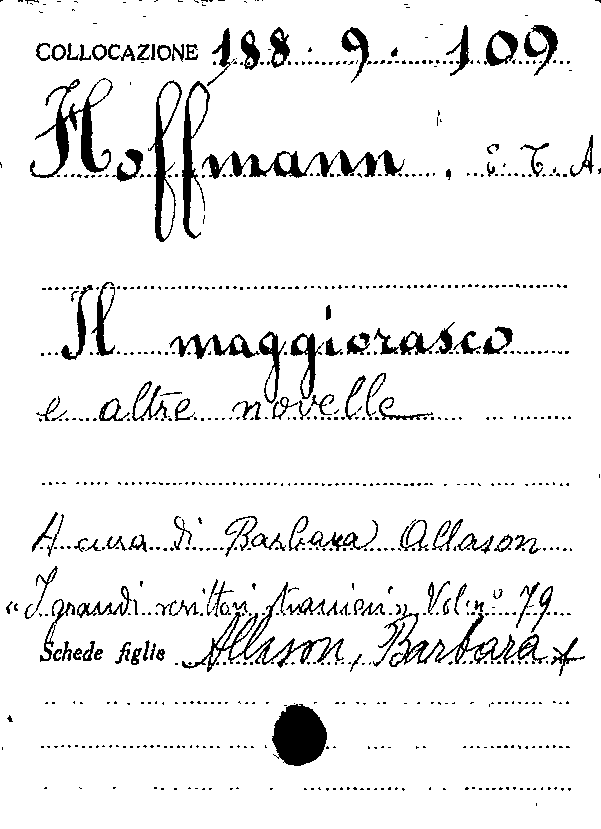 COLLOCAZIONE 188. 9. 109
Hoffmann, E. T. A.
Il maggiorasco
e altre novelle
A cura di Barbara Allason
"I grandi scrittori stranieri" Vol. n° 79
Schede figlie Allason, Barbara